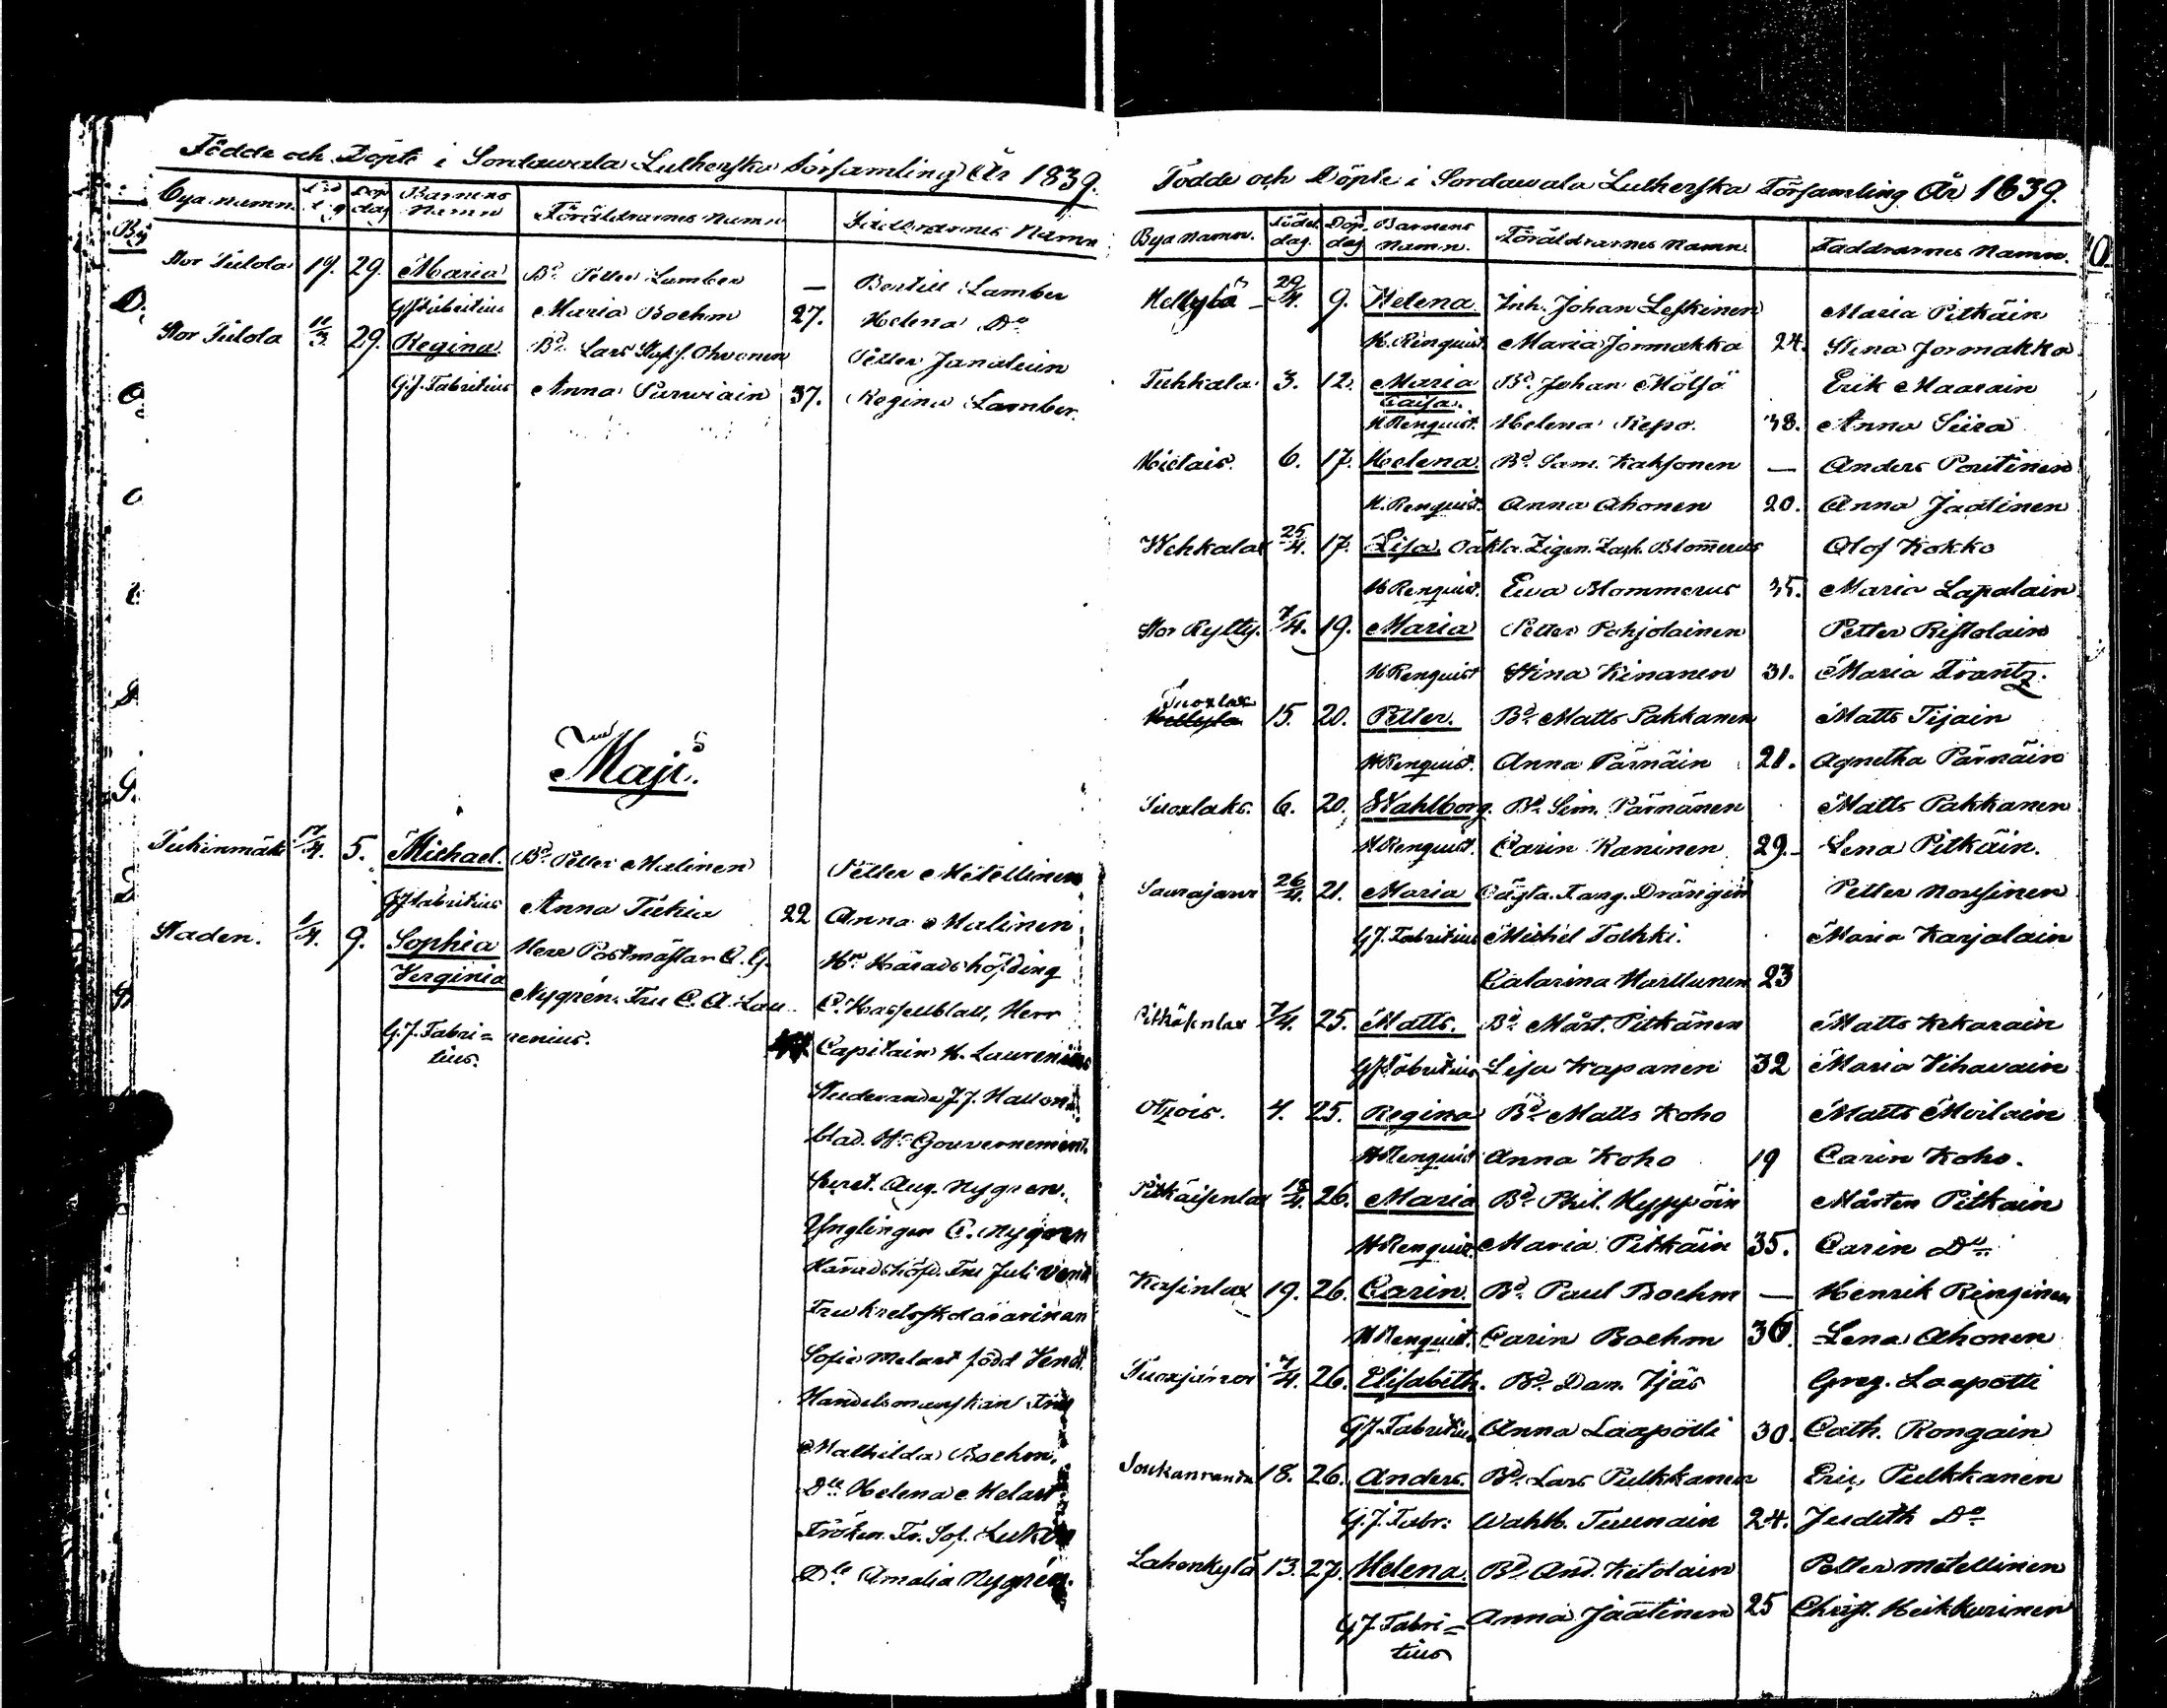 Födde och Döpte i Sordawala Lutherska Församling År 1839.
Bya namn. dag Döp dag Barnens Namn Föräldrarnes Namn Faddrarnes Namn
Stor Tiilola 19. 29. Maria Bd. Petter Lamber — Bertill Lamber
GJFabritius Maria Boehm 27. Helena Do
Stor Tiilola 11/3 29. Regina Bd. Lars Ohvonen Petter Janatuin
G.J. Fabritius Anna Parviain 37. Regina Lamber.
Maji.
Tukinmäki 17/4. 5. Michael. Bd. Petter Malinen Petter Metellinen
GJFabritius Anna Tiekia 22 Anna Malinen
Staden. 1/4. 9. Sophia Herr Postmästar C. G. Hr Häradshöfding
Verginia Nygrén. Fru C. A. Lau- C. Hasselblatt, Herr
G. J. Fabri= renius. Capitain H. Laurenius
tius. Studerande J. J. Hallon
blad. Hr Gouvernement.
Secret. Aug. Nygren.
Ynglingen C. Nygren
Häradshöfd. Fru Juli Vendt
Fru
Sofie Melart född Vendt.
Handelsmanskan Fru
Mathilda Boehm.
Dlle Helena Melart
Fröken. Fr. Sof.
Dlle Amalia Nygrén.
Födde och Döpte i Sordawala Lutherska Församling År 1839.
Bya namn. Födel. dag. Döp. dag Barnens namn. Föräldrarnes namn. Faddrarnes Namn.
Hellylä 29/4. 9. Helena Inh. Johan Leskinen Maria Pitkäin
H. Renquist. Maria Jormakka 24. Stina Jormakka
Tuhkala 3. 12. Maria Bd. Johan Mölsö Erik Maarain
Caisa.
H Renquist. Helena Repo. 38. Anna Siira
Hietais. 6. 17. Helena. Bd. Sam. Kaksonen — Anders Poutinen
H. Renquist. Anna Ahonen 20. Anna Jaatinen
Wehkalax 25/4. 17. Lisa. Oäkta. Zigen. Zach. Blomerus Olof Kokko
H Renquist. Ewa Blommerus 35. Maria Lapalain
Stor Rytty. 7/4. 19. Maria Petter Pohjolainen Petter Ristolain
H Renquist Stina Kinanen 31. Maria Frantz.
Tuoxlax
Hellylä 15. 20. Petter. Bd. Matts Pakkanen Matts Tijain
H Renquist. Anna Pärnäin 21. Agnetha Pärnäin
Tuoxlaks. 6. 20. Wahlborg. Bd. Sim. Pärnänen Matts Pakkanen
H Renquist. Carin Kaninen 29. Lena Pitkäin.
26/4. 21. Maria Petter Nousinen
GJ. Fabritius Michel Tolkki. Maria Karjalain
Catarina Marttunen 23
7/4. 25. Matts. Bd. Mårt. Pitkänen Matts Kekarain
GJFabritius Lisa Kapanen 32 Maria Vihavain
Otzois. 4. 25. Regina Bd. Matts Koho Matts Moilain
H Renquist Anna Koho 19 Carin Koho.
Pitkäisenlax 18/4. 26. Maria Bd. Phil. Hyppöin Mårten Pitkain
H Renquist. Maria Pitkäin 35. Carin Do
Kesinlax 19. 26. Carin Bd. Paul Boehm — Henrik Ringinen
H Renquist. Carin Boehm 36. Lena Ahonen
Tuoxjärvi 7/4. 26. Elisabeth. Bd. Dan. Tjäs Greg. Laapotti
GJ. Fabritius Anna Laapotti 30. Cath. Rongain
Joukanranda 18. 26. Anders. Bd. Lars Pulkkanen Eric Pulkkanen
G. J. Fabr: Wahlb. Tuunain 24. Judith Do
Lahenkylä 13. 27. Helena. Bd. And. Ketolain Petter Metellinen
GJ Fabri= Anna Jäätinen 25 Christ. Heikkurinen
tius